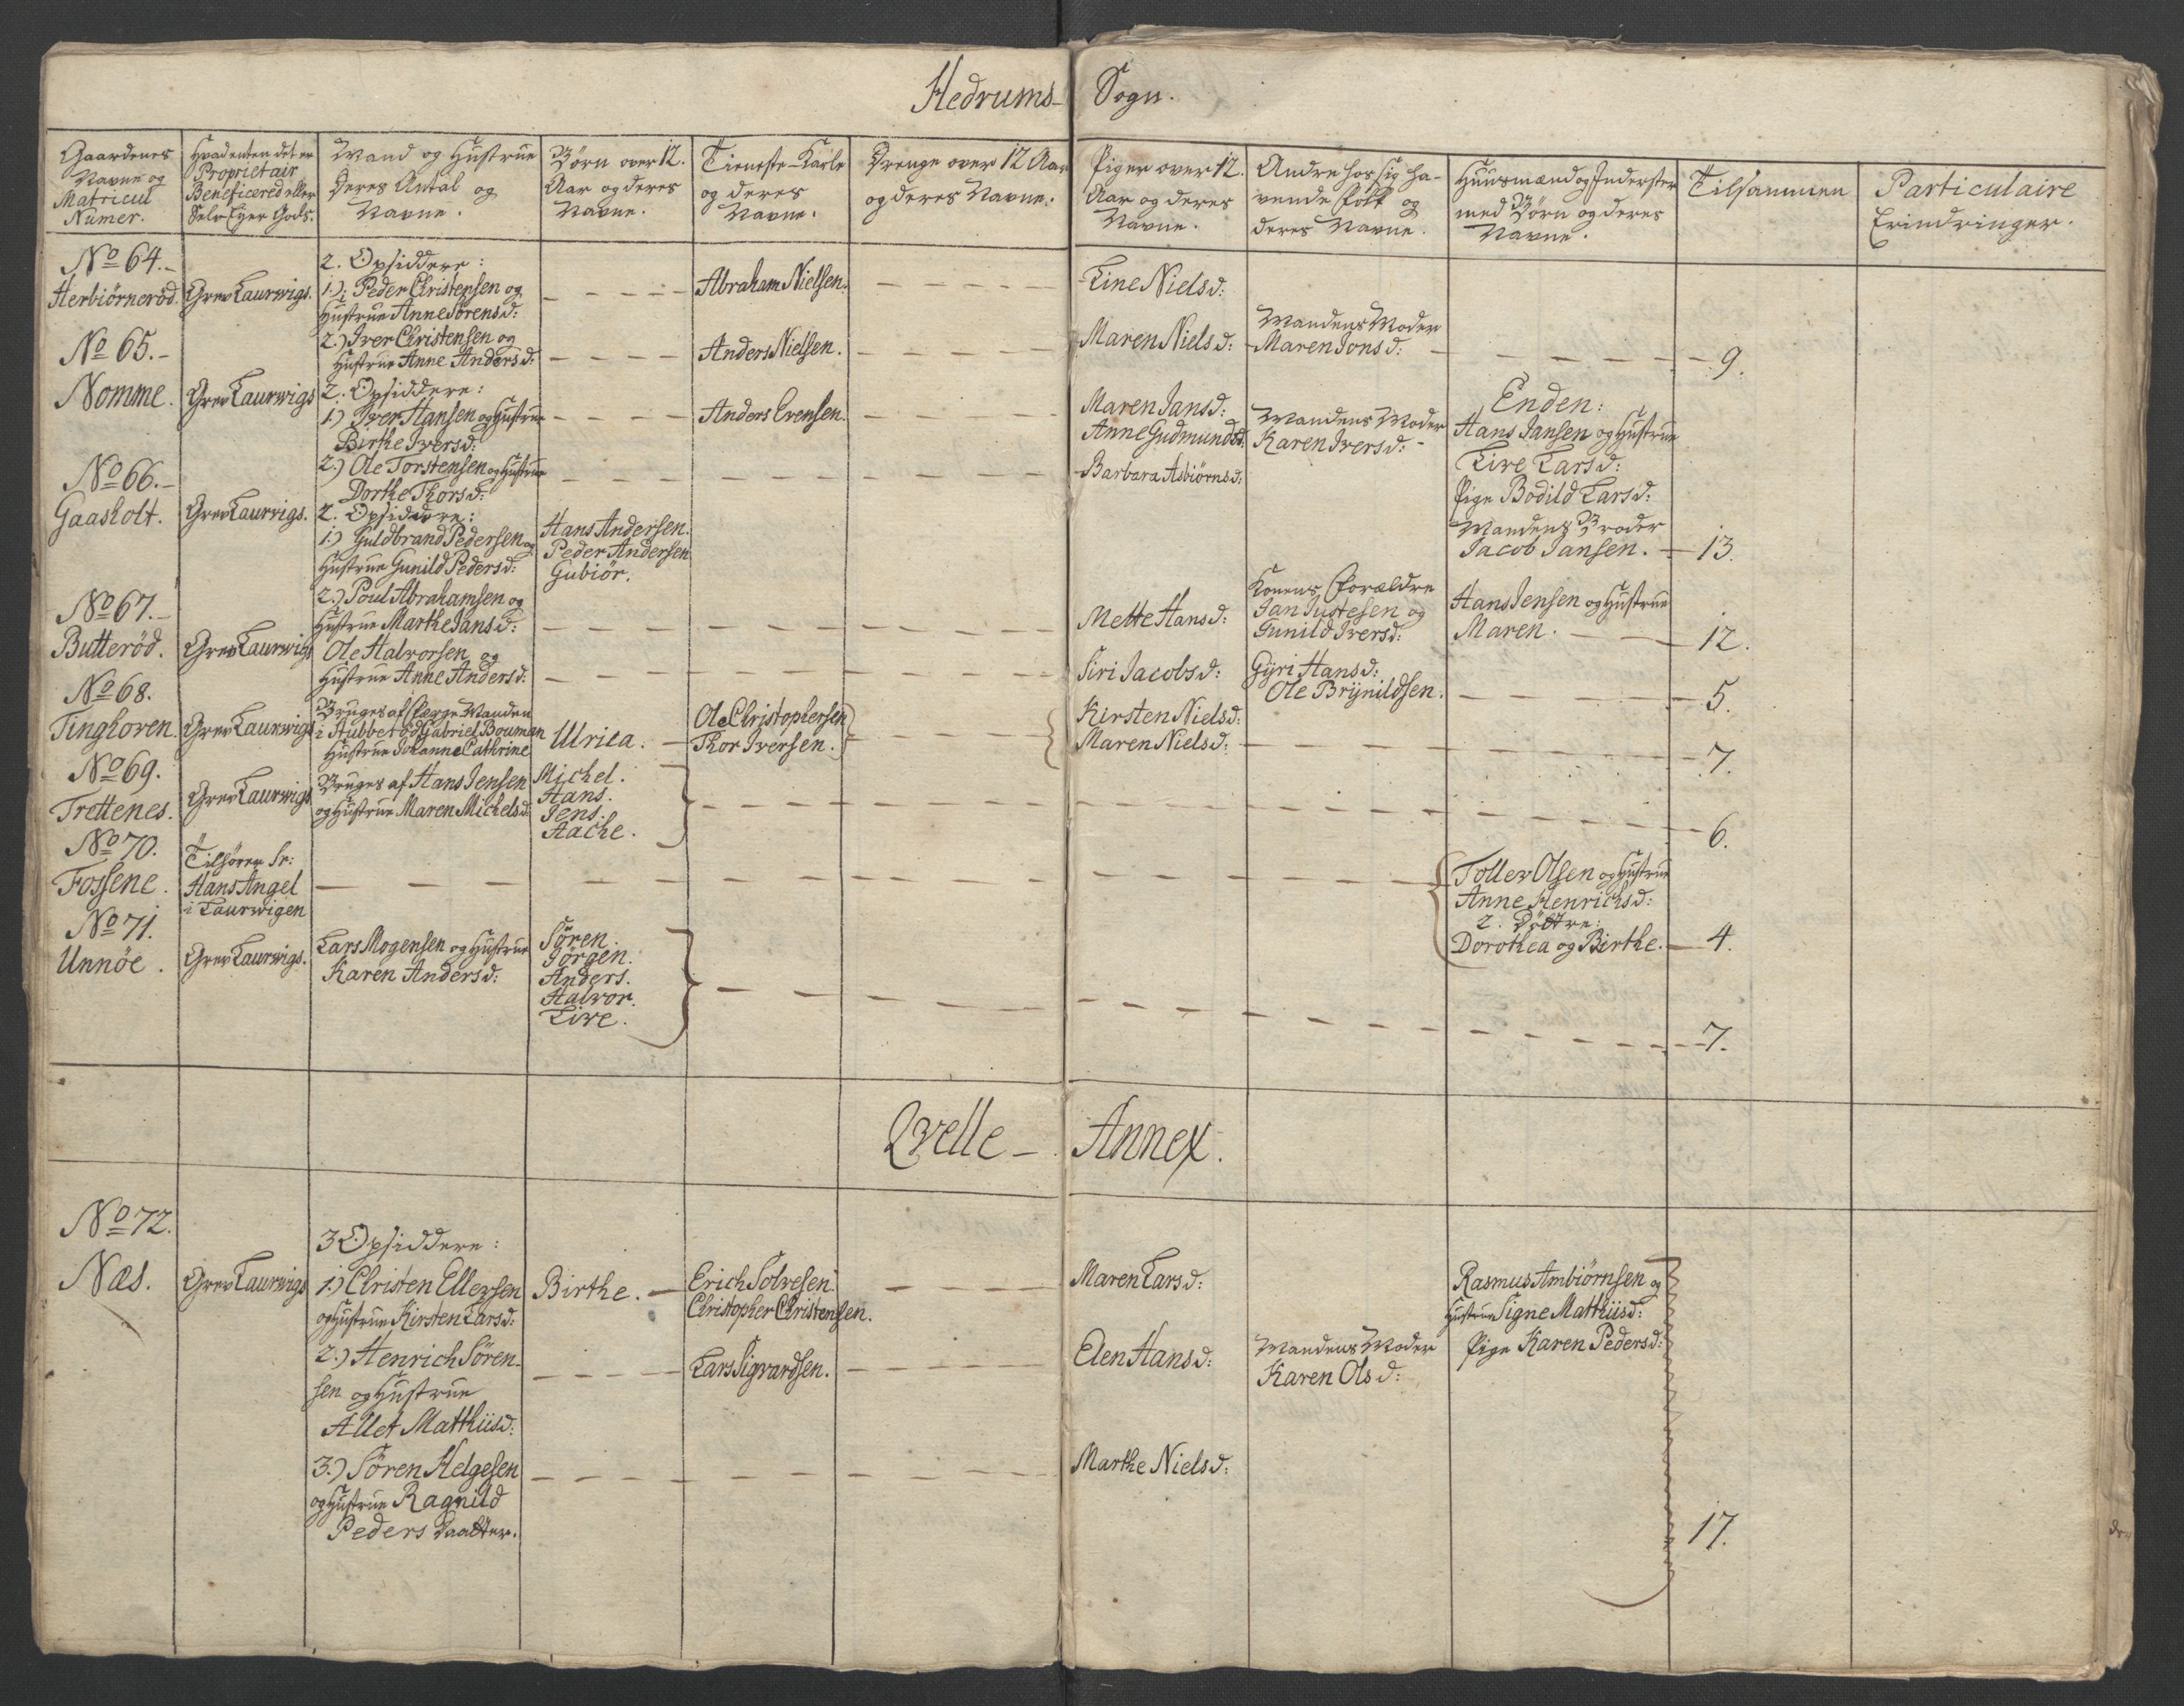 Hedrums- Sogn.
Gaardenes
Navne og
Matricul
Numer.
Hvadenten det er
Proprietair
Beneficered eller
Selv Eyer Gods.
Mand og Hustrue
Deres Antal og
Navne.
Börn over 12.
Aar og deres
Navne.
Tieneste-Karle
og deres
Navne.
Drenge over 12 Aar
og deres Navne.
Piger over 12.
Aar og deres
Navne.
Andre hos sig ha-
vende Folk og
deres Navne.
Huusmænd og Inderster
med Börn og deres
Navne.
Tilsammen
Particulaire
Erindringer.
No 64.-
Herbiörneröd.
Grev Laurwigs.
2. Opsiddere:
1.) Peder Christensen og
Hustrue Anne Sörensd:
Abraham Nielsen.
Line Nielsd:
2.) Iver Christensen og
Hustrue Anne Andersd:
Anders Nielsen.
Maren Nielsd:
Mandens Moder
Maren Jonsd:
9.
No 65.-
Nomme.
Grev Laurwigs
2. Opsiddere:
1.) Iver Hansen og Hustrue
Birthe Iversd:
Anders Evensen.
Maren Jansd:
Anne Gudmundsd:
Mandens Moder
Karen Iversd:
Enden:
Hans Jansen og Hustrue
Live Larsd:
Pige Bodild Larsd:
Mandens Broder
Jacob Jansen.
2.) Ole Torstensen og Hustrue
Dorthe Thorsd:
Barbara Asbiörnsd:
13.
No 66.-
Gaasholt.
Grev Laurvigs.
2. Opsiddere:
1.) Guldbrand Pedersen og
Hustrue Gunild Pedersd:
Hans Andersen.
Peder Andersen
Gubiör.
2.) Poul Abrahamsen og
Hustrue Marthe Jansd:
Mette Hansd:
Konens Forældre
Jan Justesen og
Gunild Iversd:
Hans Jensen og Hustrue
Maren.
12.
No 67.-
Butteröd.
Grev Laurwigs
Ole Halvorsen og
Hustrue Anne Andersd:
Siri Jacobsd:
Gÿri Hansd:
Ole Brÿnildsen.
5.
No 68.
Tinghoven.
Grev Laurwigs
Bruges af Færge Manden
i Hubbet öd Gabriel Bouman
Hustrue Johanne Cathrine
Ulrica.
Ole Christophersen
Thor Iversen.
Kirsten Nielsd:
Maren Nielsd:
7.
No 69.
Trettenes.
Grev Laurwigs
Bruges af Hans Jensen
og Hustrue Maren Michelsd:
Michel.
Hans.
Jens.
Aache.
6.
No 70.
Fossene.
Tilhörer Sr:
Hans Angel
i Laurwigen
Toller Olsen og Hustrue
Anne Henrichsd:
2. Döttre:
Dorothea og Birthe.
4.
No 71.
Unnöe.
Grev Laurwigs.
Lars Mogensen og Hustrue
Karen Andersd:
Sören.
Jörgen.
Anders.
Halvor.
Live.
7.
Qvelle- Annex.
No 72.
Næs.
Grev Laurwigs
3 Opsiddere:
1.) Christen Ellefsen
og Hustrue Kirsten Larsd:
Birthe.
Erich Solvesen.
Christopher Christensen.
Maren Larsd:
Rasmus Ambiörnsen og
Hustrue Signe Matthiisd:
Pige Karen Pedersd:
2.) Henrich Sören-
sen og Hustrue
Allet Matthiisd:
Lars Sigvardsen.
Elen Hansd:
Mandens Moder
Karen Olsd:
3.) Sören Helgesen
og Hustrue Ragnild
Peders Daatter.
Marthe Nielsd:
17.